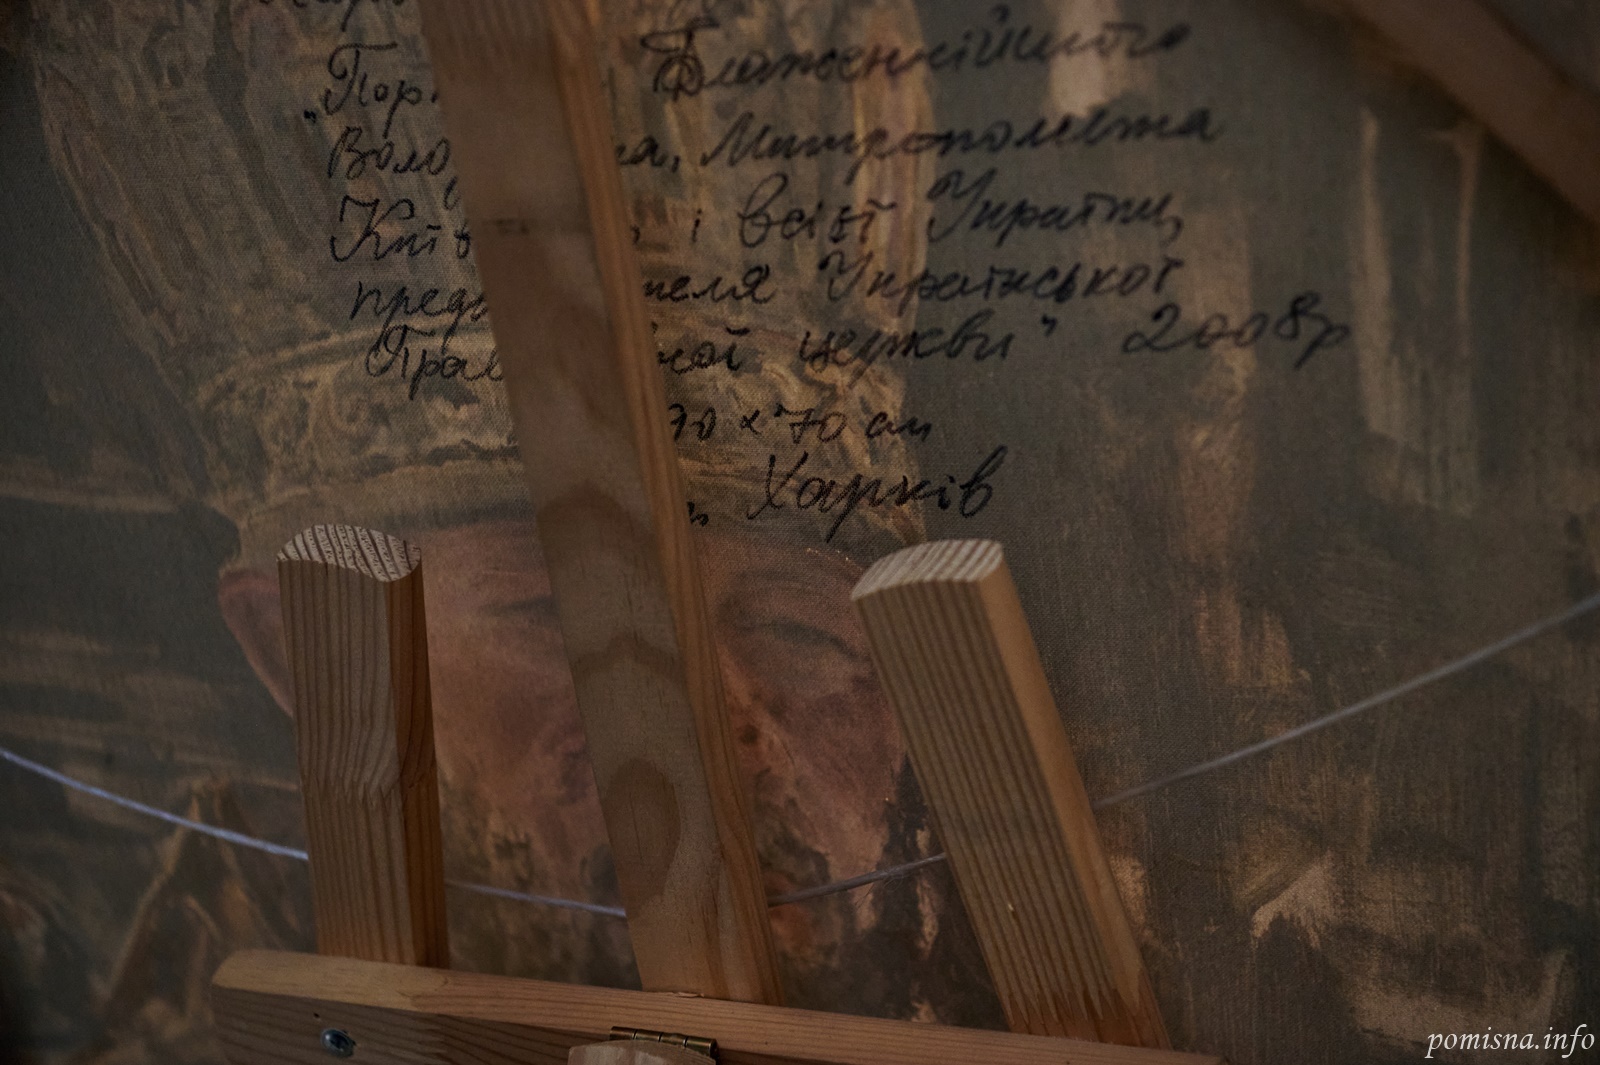 "Пор Блаженнійшого
Воло ра, Митрополита
Київ і всієї України,
предс теля Української
Прав ної церкви" 2008р
70 x 70 см
Харків
pomisna.info